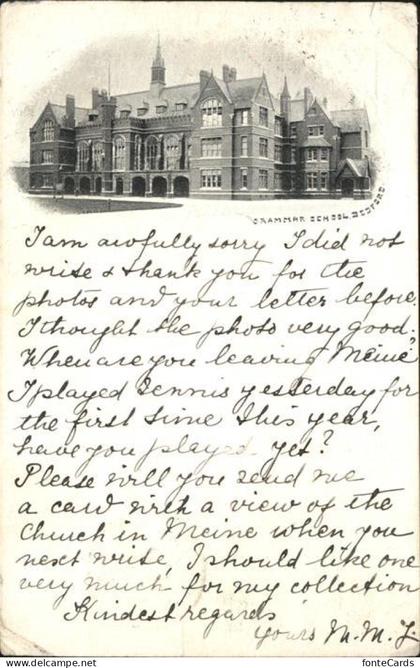 GRAMMAR SCHOOL, BEDFORD
I am awfully sorry I did not
write & thank you for the
photos and your letter before.
I thought the photo very good.
When are you leaving Meine?
I played tennis yesterday for
the first time this year,
have you played yet?
Please will you send me
a card with a view of the
church in Meine when you
next write, I should like one
very much for my collection
Kindest regards
yours M.M.L
fonteCards